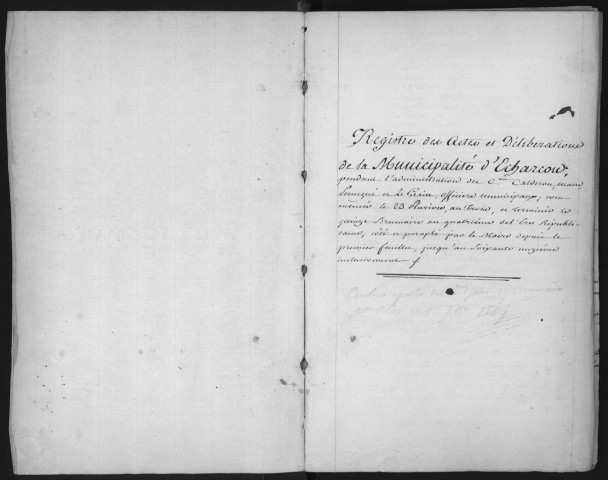 Registre des Actes et Délibérations
de la Municipalité d'Echarcon,
pendant l'administration des C.ens Calderon, maire
et le Grain, officiers municipaux; com
mencée le 23 Pluviose, an Trois, et terminée le
quinze Brumaire an quatrième de l'Ere Républi-
caine; côté et paraphé par le Maire depuis le
premier feuillet, jusqu'au Soixante onzième
inclusivement